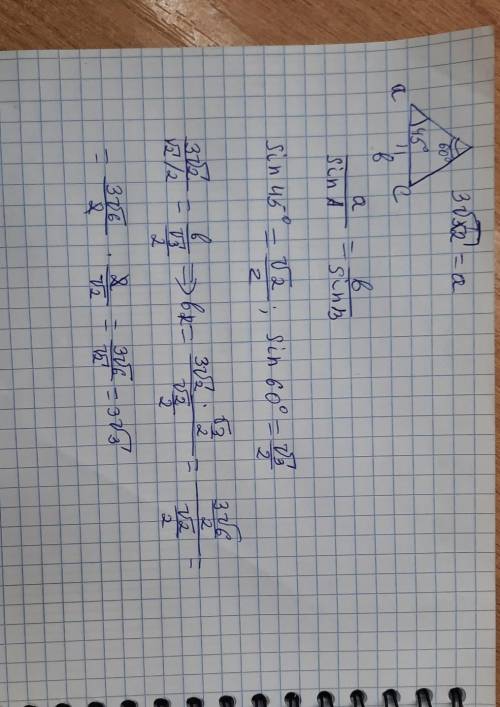 3√2 = a
60°
45°
a
b
C
a/sin A = b/sin B
sin 45° = √2/2 ; sin 60° = √3/2
3√2/(√2/2) = b/(√3/2) ⇒ b = (3√2 · √3/2)/(√2/2) = (3√6/2)/(√2/2) =
= 3√6/2 · 2/√2 = 3√6/√2 = 3√3